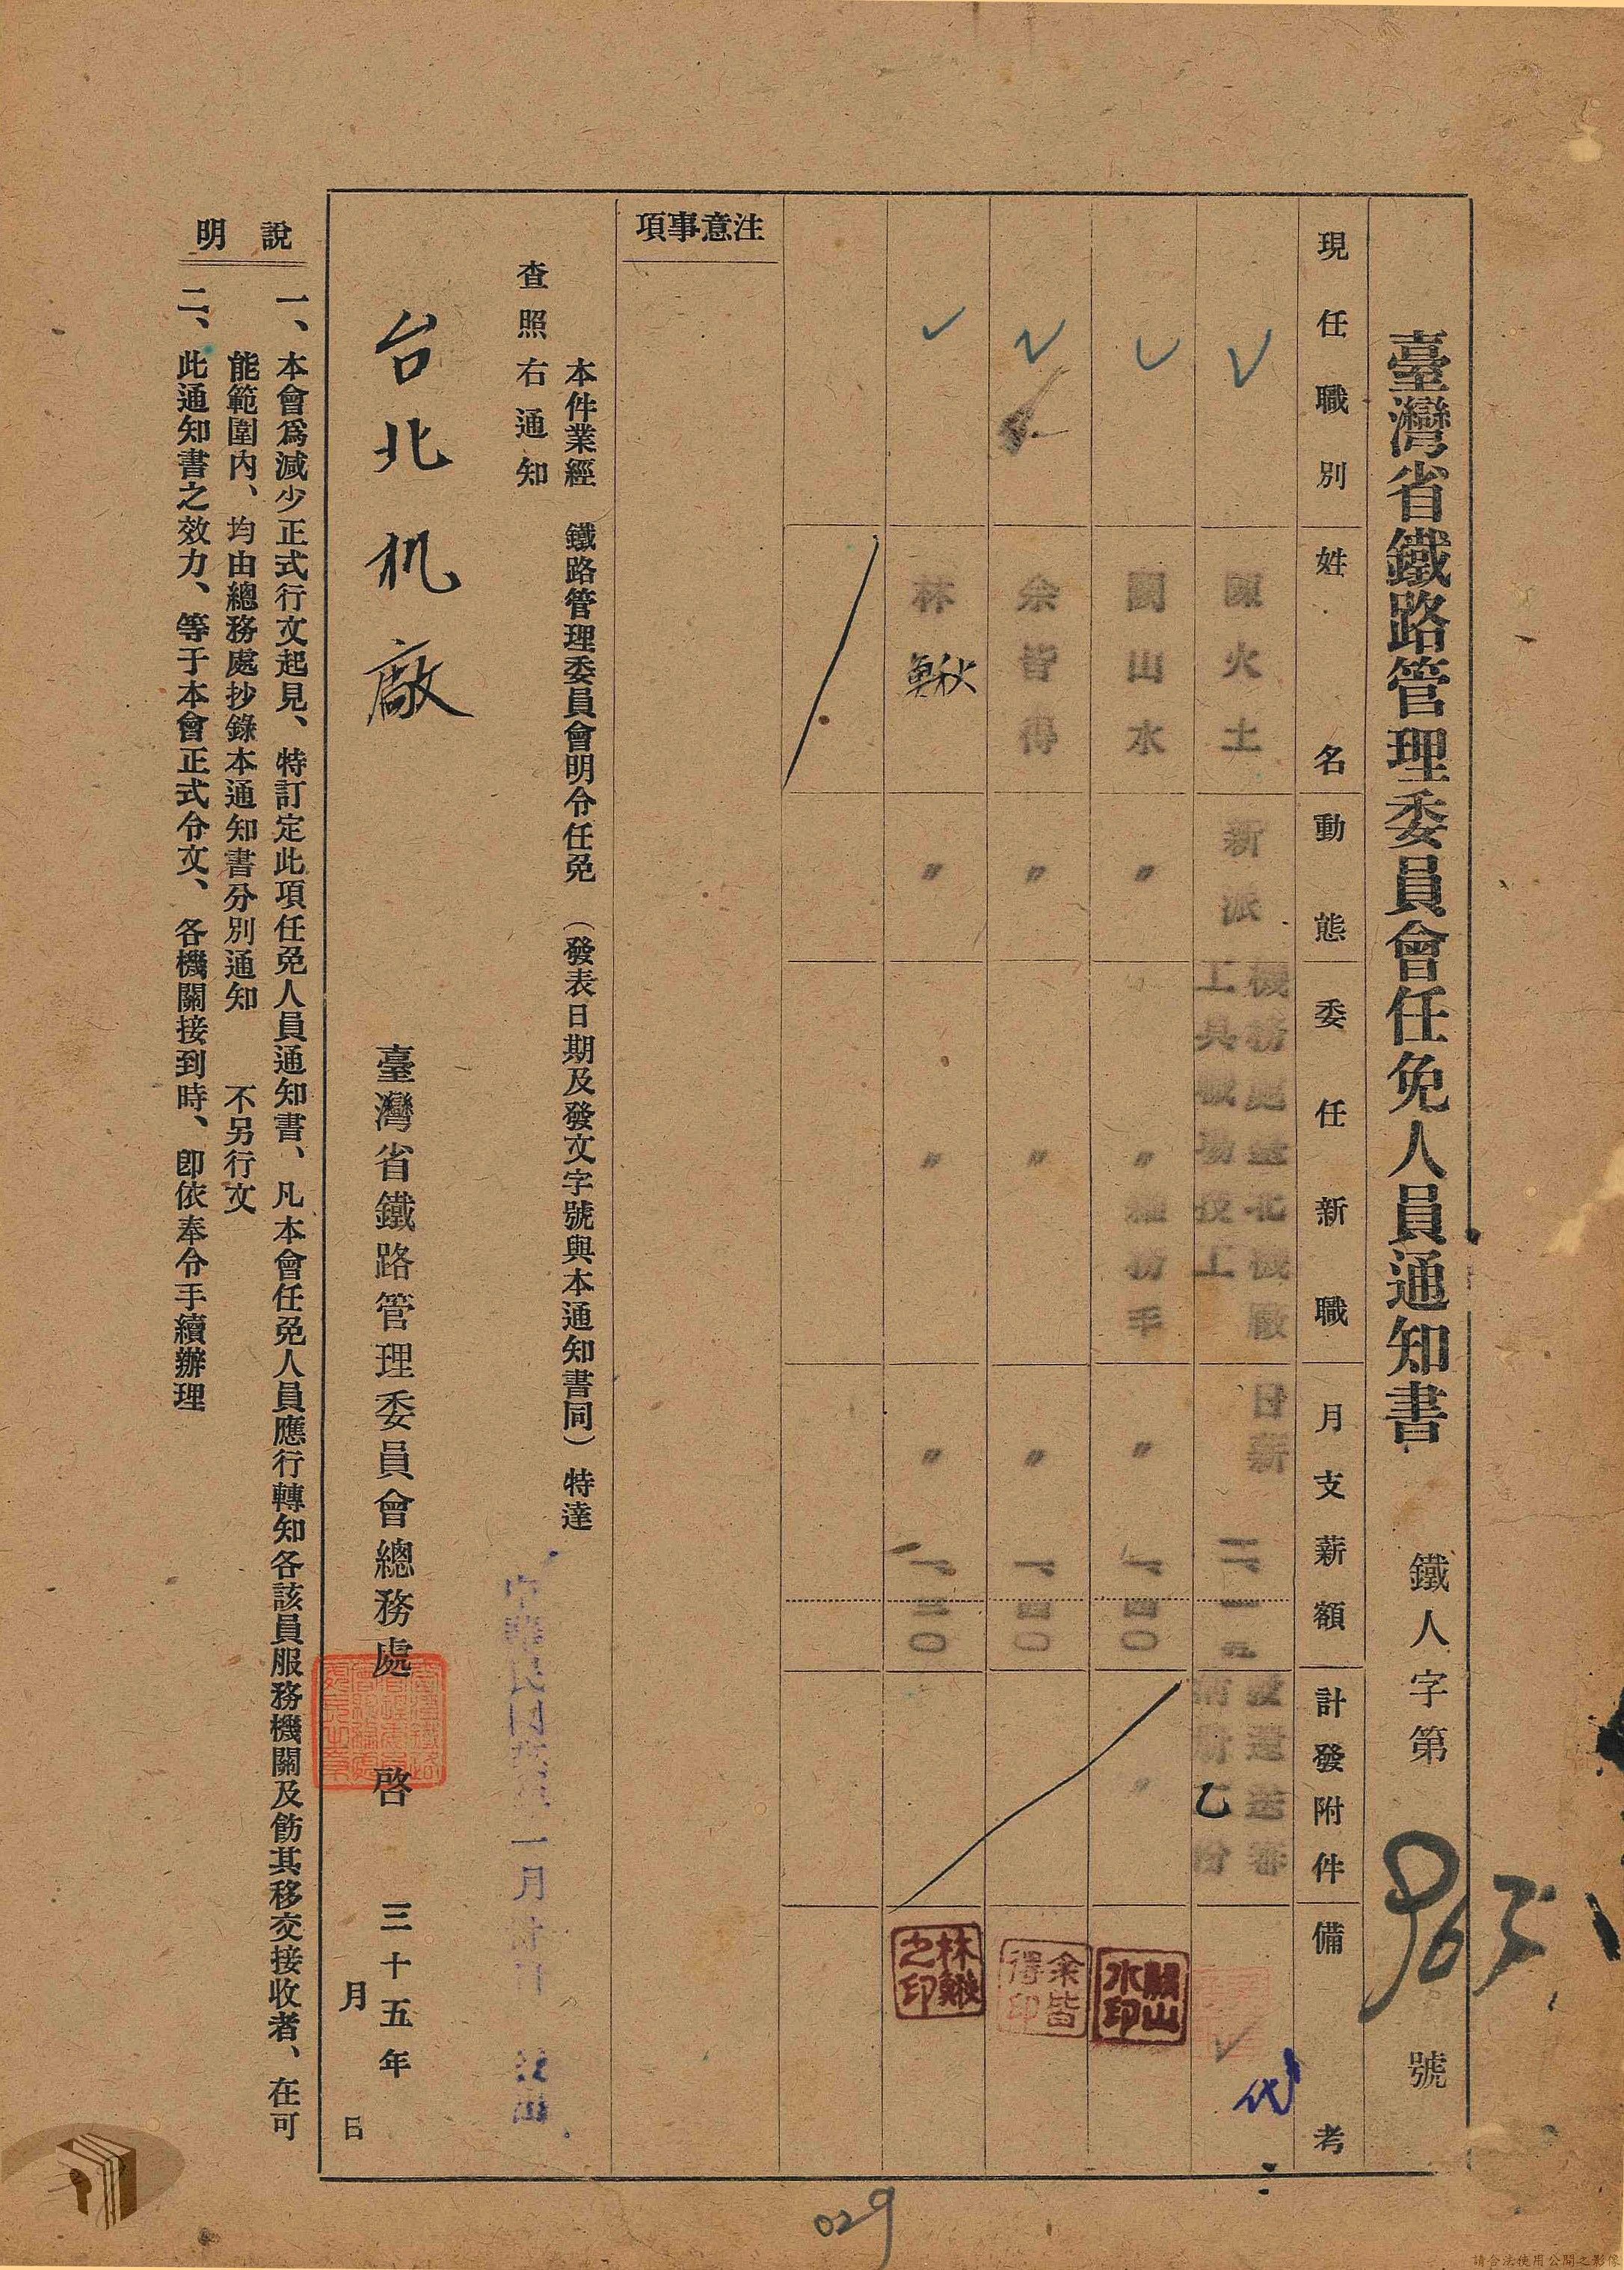 臺灣省鐵路管理委員會任免人員通知書 鐵人字第 963 號
現任職別 姓名 動態 委任新職 月支薪額 計發附件 備考
陳火土 新派 機務處臺北機廠
工具職場技工 日薪 二 一五 乙
代
闕山水 〃 〃 務手 〃 一 四〇 〃
闕山水印
余皆得 〃 〃 〃 一 四〇
余皆得印
林鰍 〃 〃 〃 一 三〇
林鰍之印
注意事項
本件業經 鐵路管理委員會明令任免 (發表日期及發文字號與本通知書同) 特達
查照右通知
中華民國 一月
台北机廠
臺灣省鐵路管理委員會總務處 啓 三十五年
月 日
說明
一、本會爲減少正式行文起見、特訂定此項任免人員通知書、凡本會任免人員應行轉知各該員服務機關及飭其移交接收者、在可
能範圍內、均由總務處抄錄本通知書分別通知 不另行文
二、此通知書之效力、等于本會正式令文、各機關接到時、卽依奉令手續辦理
029
請合法使用公開之影像